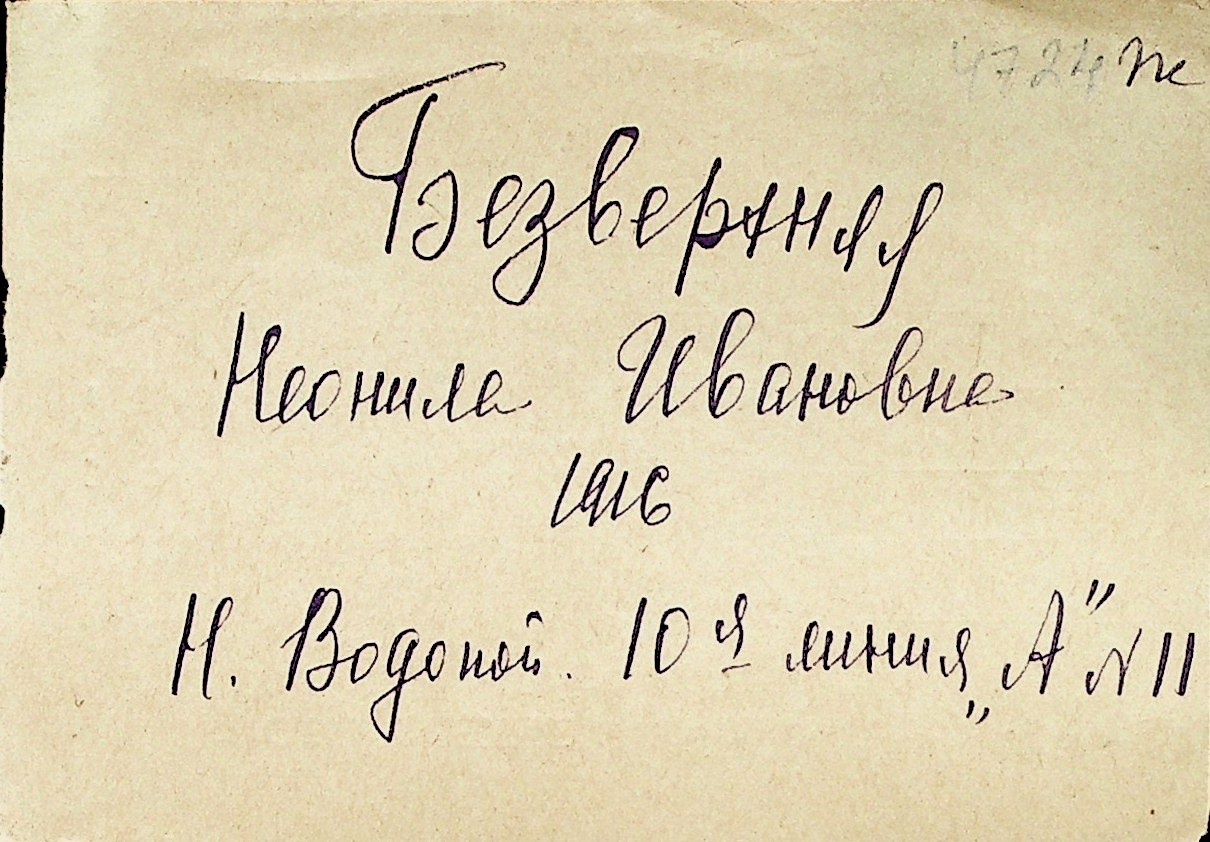 4724 ж
Безверхняя
Неонила Ивановна
1916
Н. Водопой. 10я линия „А" N 11